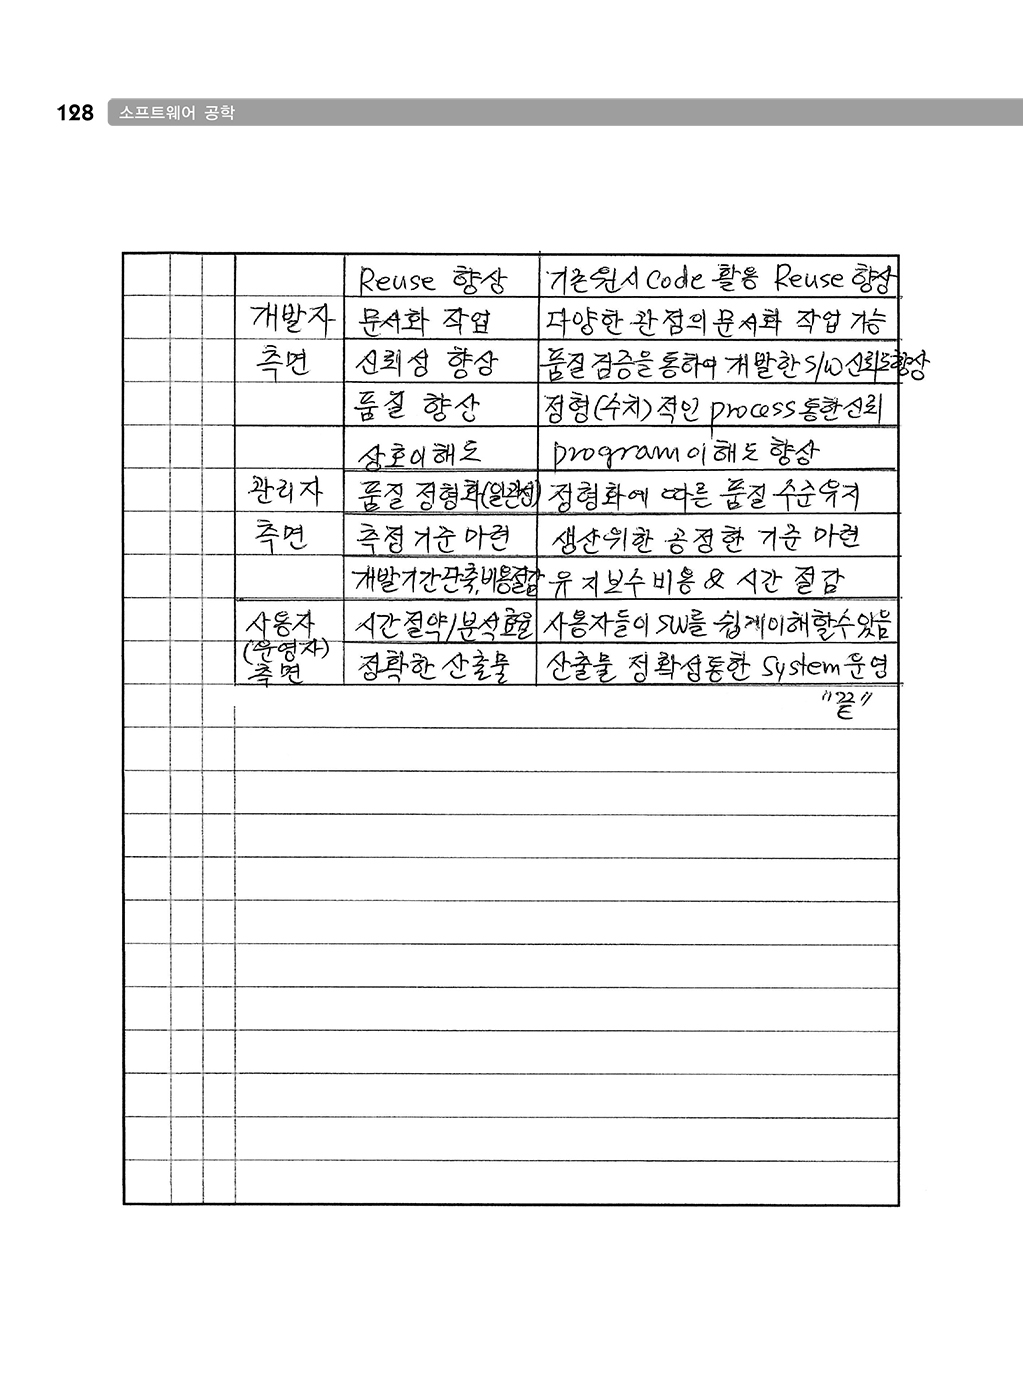 128 소프트웨어 공학
Reuse 향상 기존원시 Code 활용 Reuse 향상
개발자 문서화 작업 다양한 관점의 문서화 작업 가능
측면 신뢰성 향상 품질 검증을 통하여 개발한 S/W 신뢰도 향상
품질 향산 정형(수치)적인 process 통한 신뢰
상호이해도 program 이해도 향상
관리자 품질 정형화(일관성) 정형화에 따른 품질 수준 유지
측면 측정 기준 마련 생산위한 공정한 기준 마련
개발기간 단축, 비용절감 유지보수 비용 & 시간 절감
사용자 시간절약/분석효율 사용자들이 SW를 쉽게 이해할수있음
(운영자)
측면 정확한 산출물 산출물 정확성통한 System 운영
"끝"